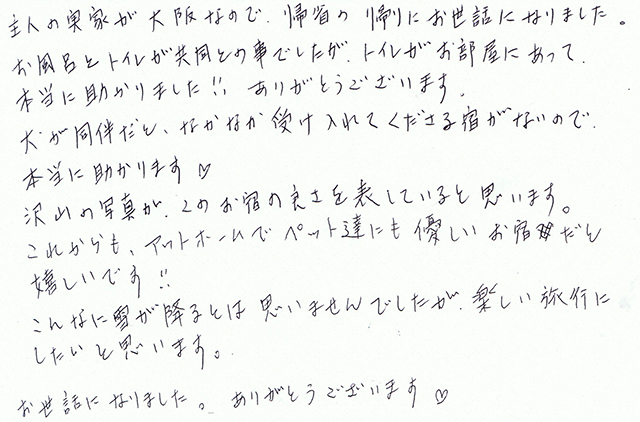 主人の実家が大阪なので、帰省の帰りにお世話になりました。
お風呂とトイレが共同との事でしたが、トイレがお部屋にあって、
本当に助かりました!! ありがとうございます。
犬が同伴だと、なかなか受け入れてくださる宿がないので、
本当に助かります♡
沢山の写真が、このお宿の良さを表していると思います。
これからも、アットホームでペット達にも優しいお宿だと
嬉しいです!!
こんなに雪が降るとは思いませんでしたが、楽しい旅行に
したいと思います。
お世話になりました。ありがとうございます♡